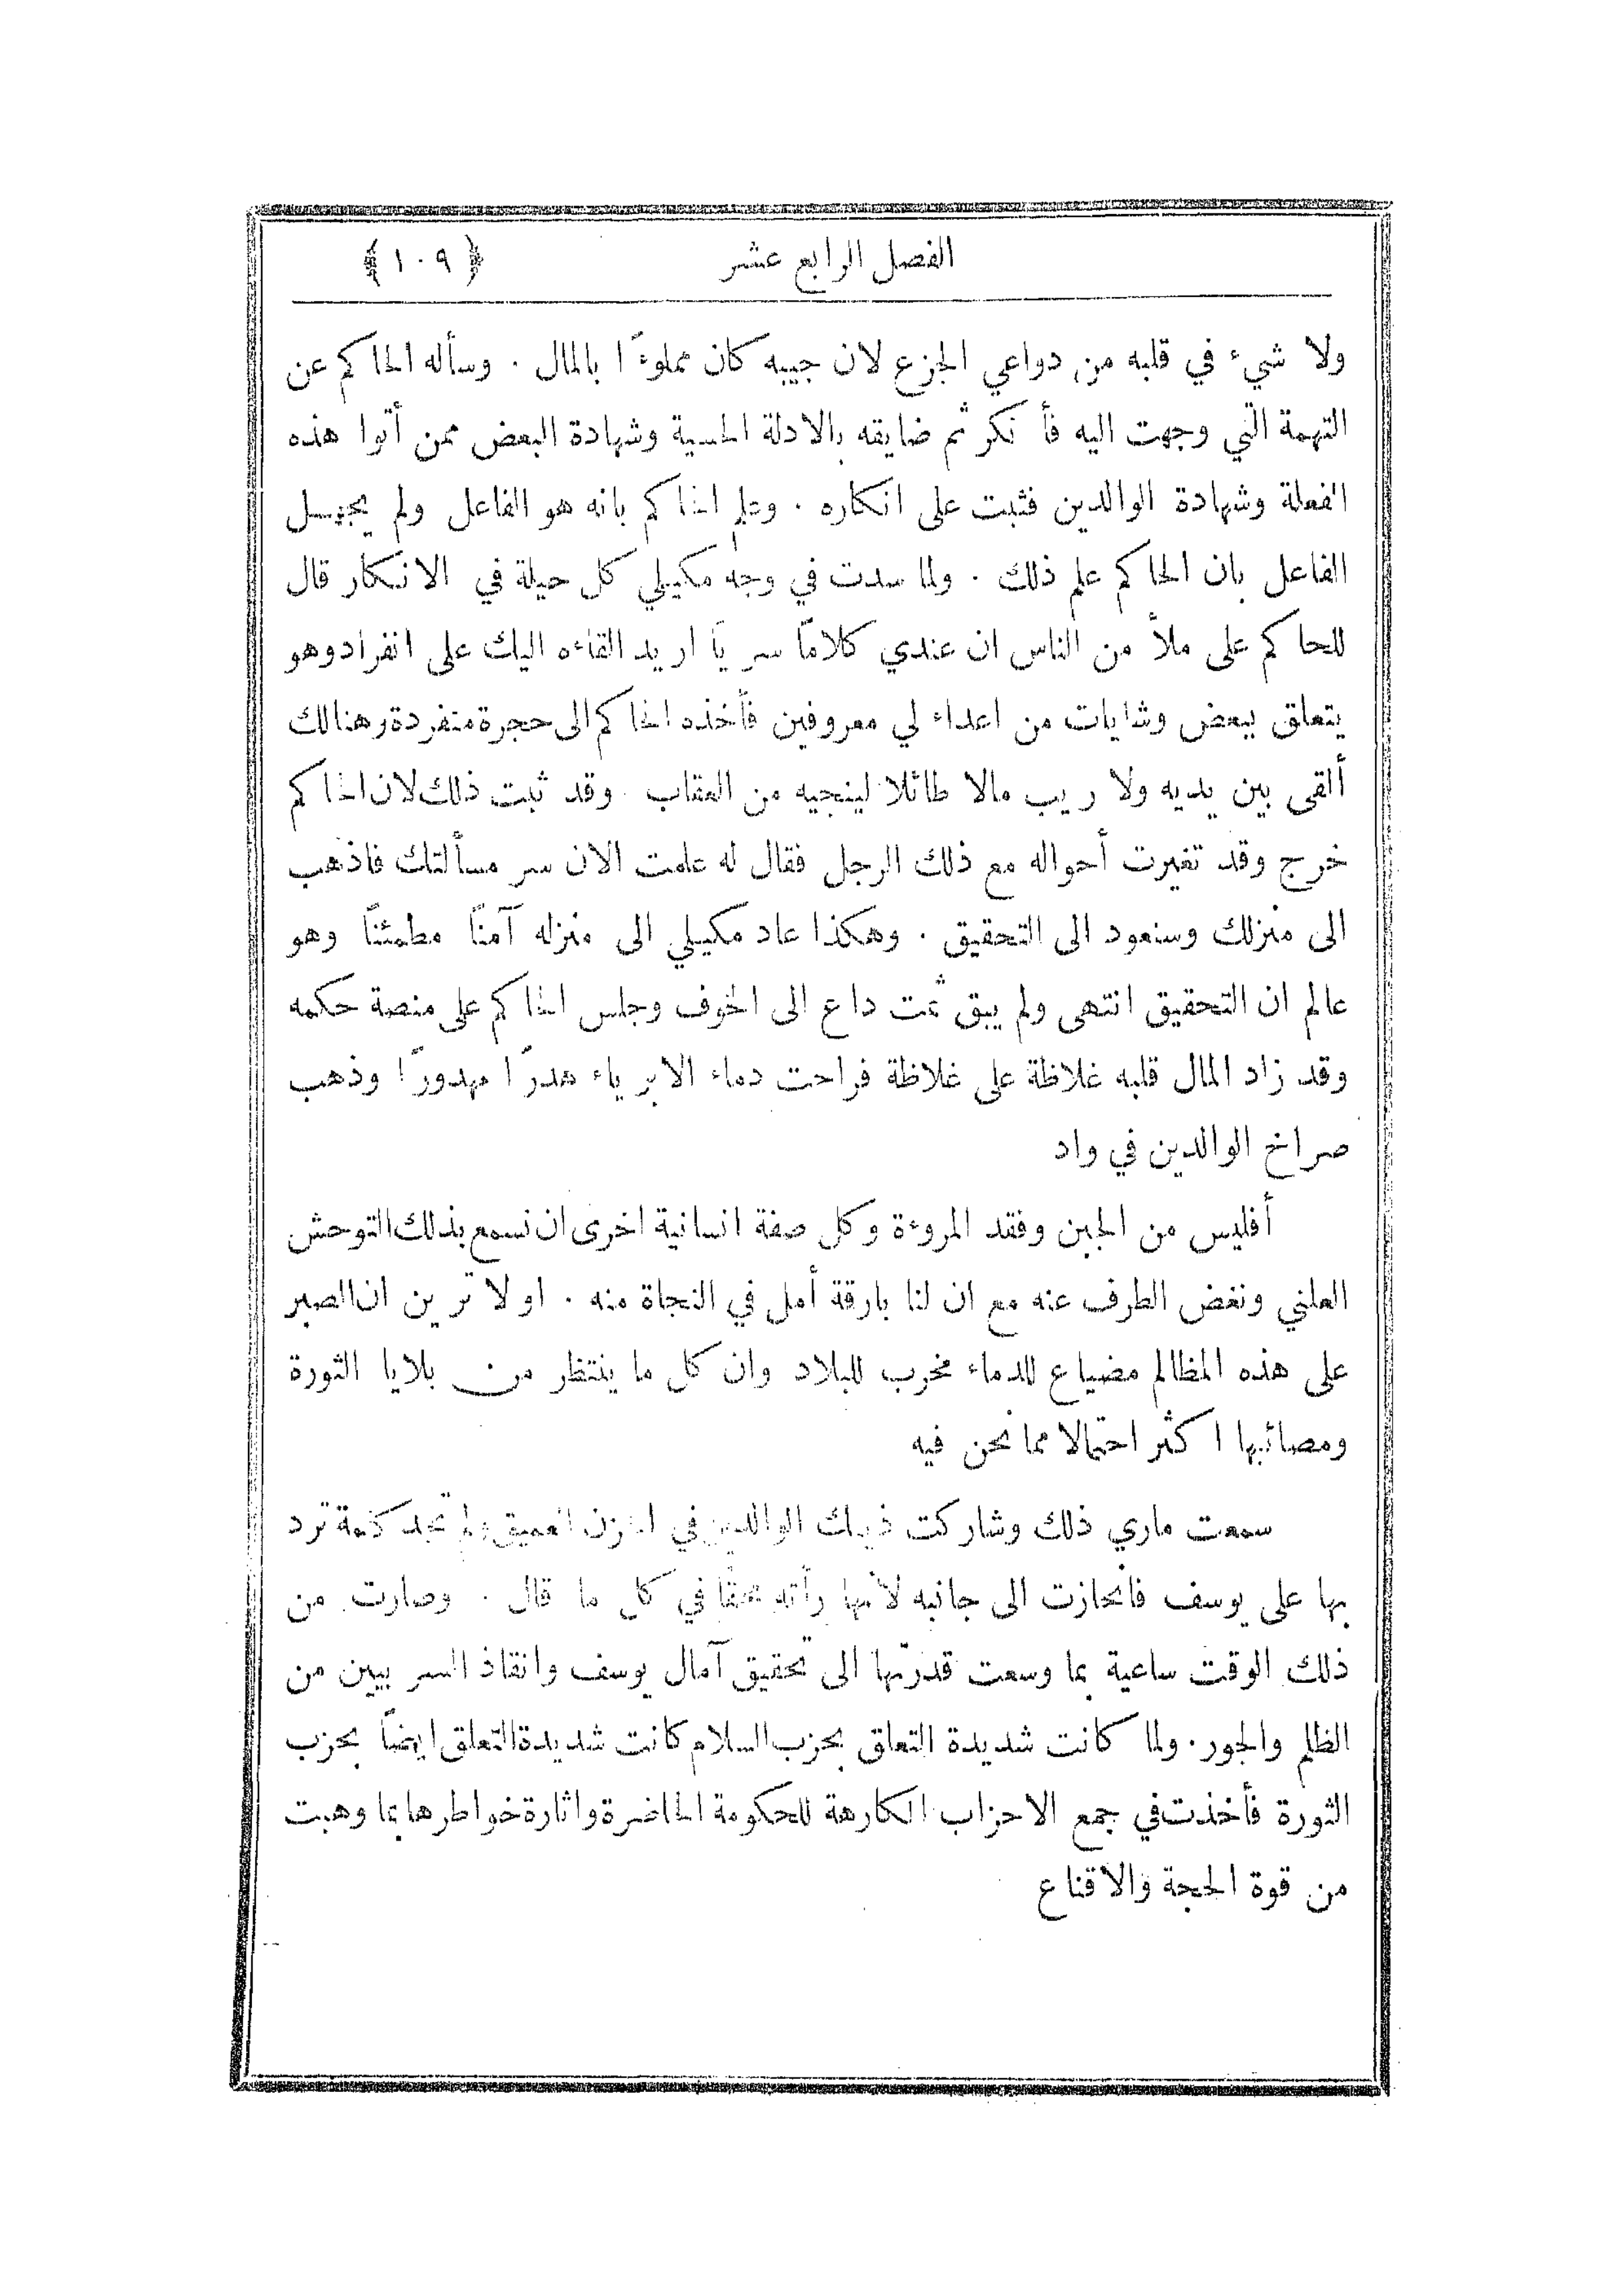 الفصل الرابع عشر ﴿ ١٠٩ ﴾
ولا شيء في قلبه من دواعي الجزع لان جيبه كان مملوءًا بالمال . وسأله الحاكم عن
التهمة التي وجهت اليه فأنكر ثم ضايقه بالادلة الحسية وشهادة البعض ممن أتوا هذه
الفعلة وشهادة الوالدين فثبت على انكاره . وعلم الحاكم بانه هو الفاعل ولم يجهل
الفاعل بان الحاكم علم ذلك . ولما سدت في وجه مكيلي كل حيلة في الانكار قال
للحاكم على ملأ من الناس ان عندي كلامًا سريًا اريد القاءه اليك على انفراد وهو
يتعلق ببعض وشايات من اعداء لي معروفين فأخذه الحاكم الى حجرة منفردة وهنالك
ألقى بين يديه ولا ريب مالا طائلا لينجيه من العقاب . وقد ثبت ذلك لان الحاكم
خرج وقد تغيرت أحواله مع ذلك الرجل فقال له علمت الان سر مسألتك فاذهب
الى منزلك وسنعود الى التحقيق . وهكذا عاد مكيلي الى منزله آمنًا مطمئنًا وهو
عالم ان التحقيق انتهى ولم يبق ثمت داع الى الخوف وجلس الحاكم على منصة حكمه
وقد زاد المال قلبه غلاظة على غلاظة فراحت دماء الابرياء هدرًا مهدورًا وذهب
صراخ الوالدين في واد
أفليس من الجبن وفقد المروءة وكل صفة انسانية اخرى ان نسمع بذلك التوحش
العلني ونغض الطرف عنه مع ان لنا بارقة أمل في النجاة منه . اولا ترين ان الصبر
على هذه المظالم مضياع للدماء مخرب للبلاد وان كل ما ينتظر من بلايا الثورة
ومصائبها اكثر احتمالا مما نحن فيه
سمعت ماري ذلك وشاركت ذينك الوالدين في الحزن العميق ولم تجد كلمة ترد
بها على يوسف فانحازت الى جانبه لأنها رأته محقًا في كل ما قال . وصارت من
ذلك الوقت ساعية بما وسعت قدرتها الى تحقيق آمال يوسف وانقاذ السربيين من
الظلم والجور . ولما كانت شديدة التعلق بحزب السلام كانت شديدة التعلق ايضًا بحزب
الثورة فأخذت في جمع الاحزاب الكارهة للحكومة الحاضرة واثارة خواطرها بما وهبت
من قوة الحجة والاقناع